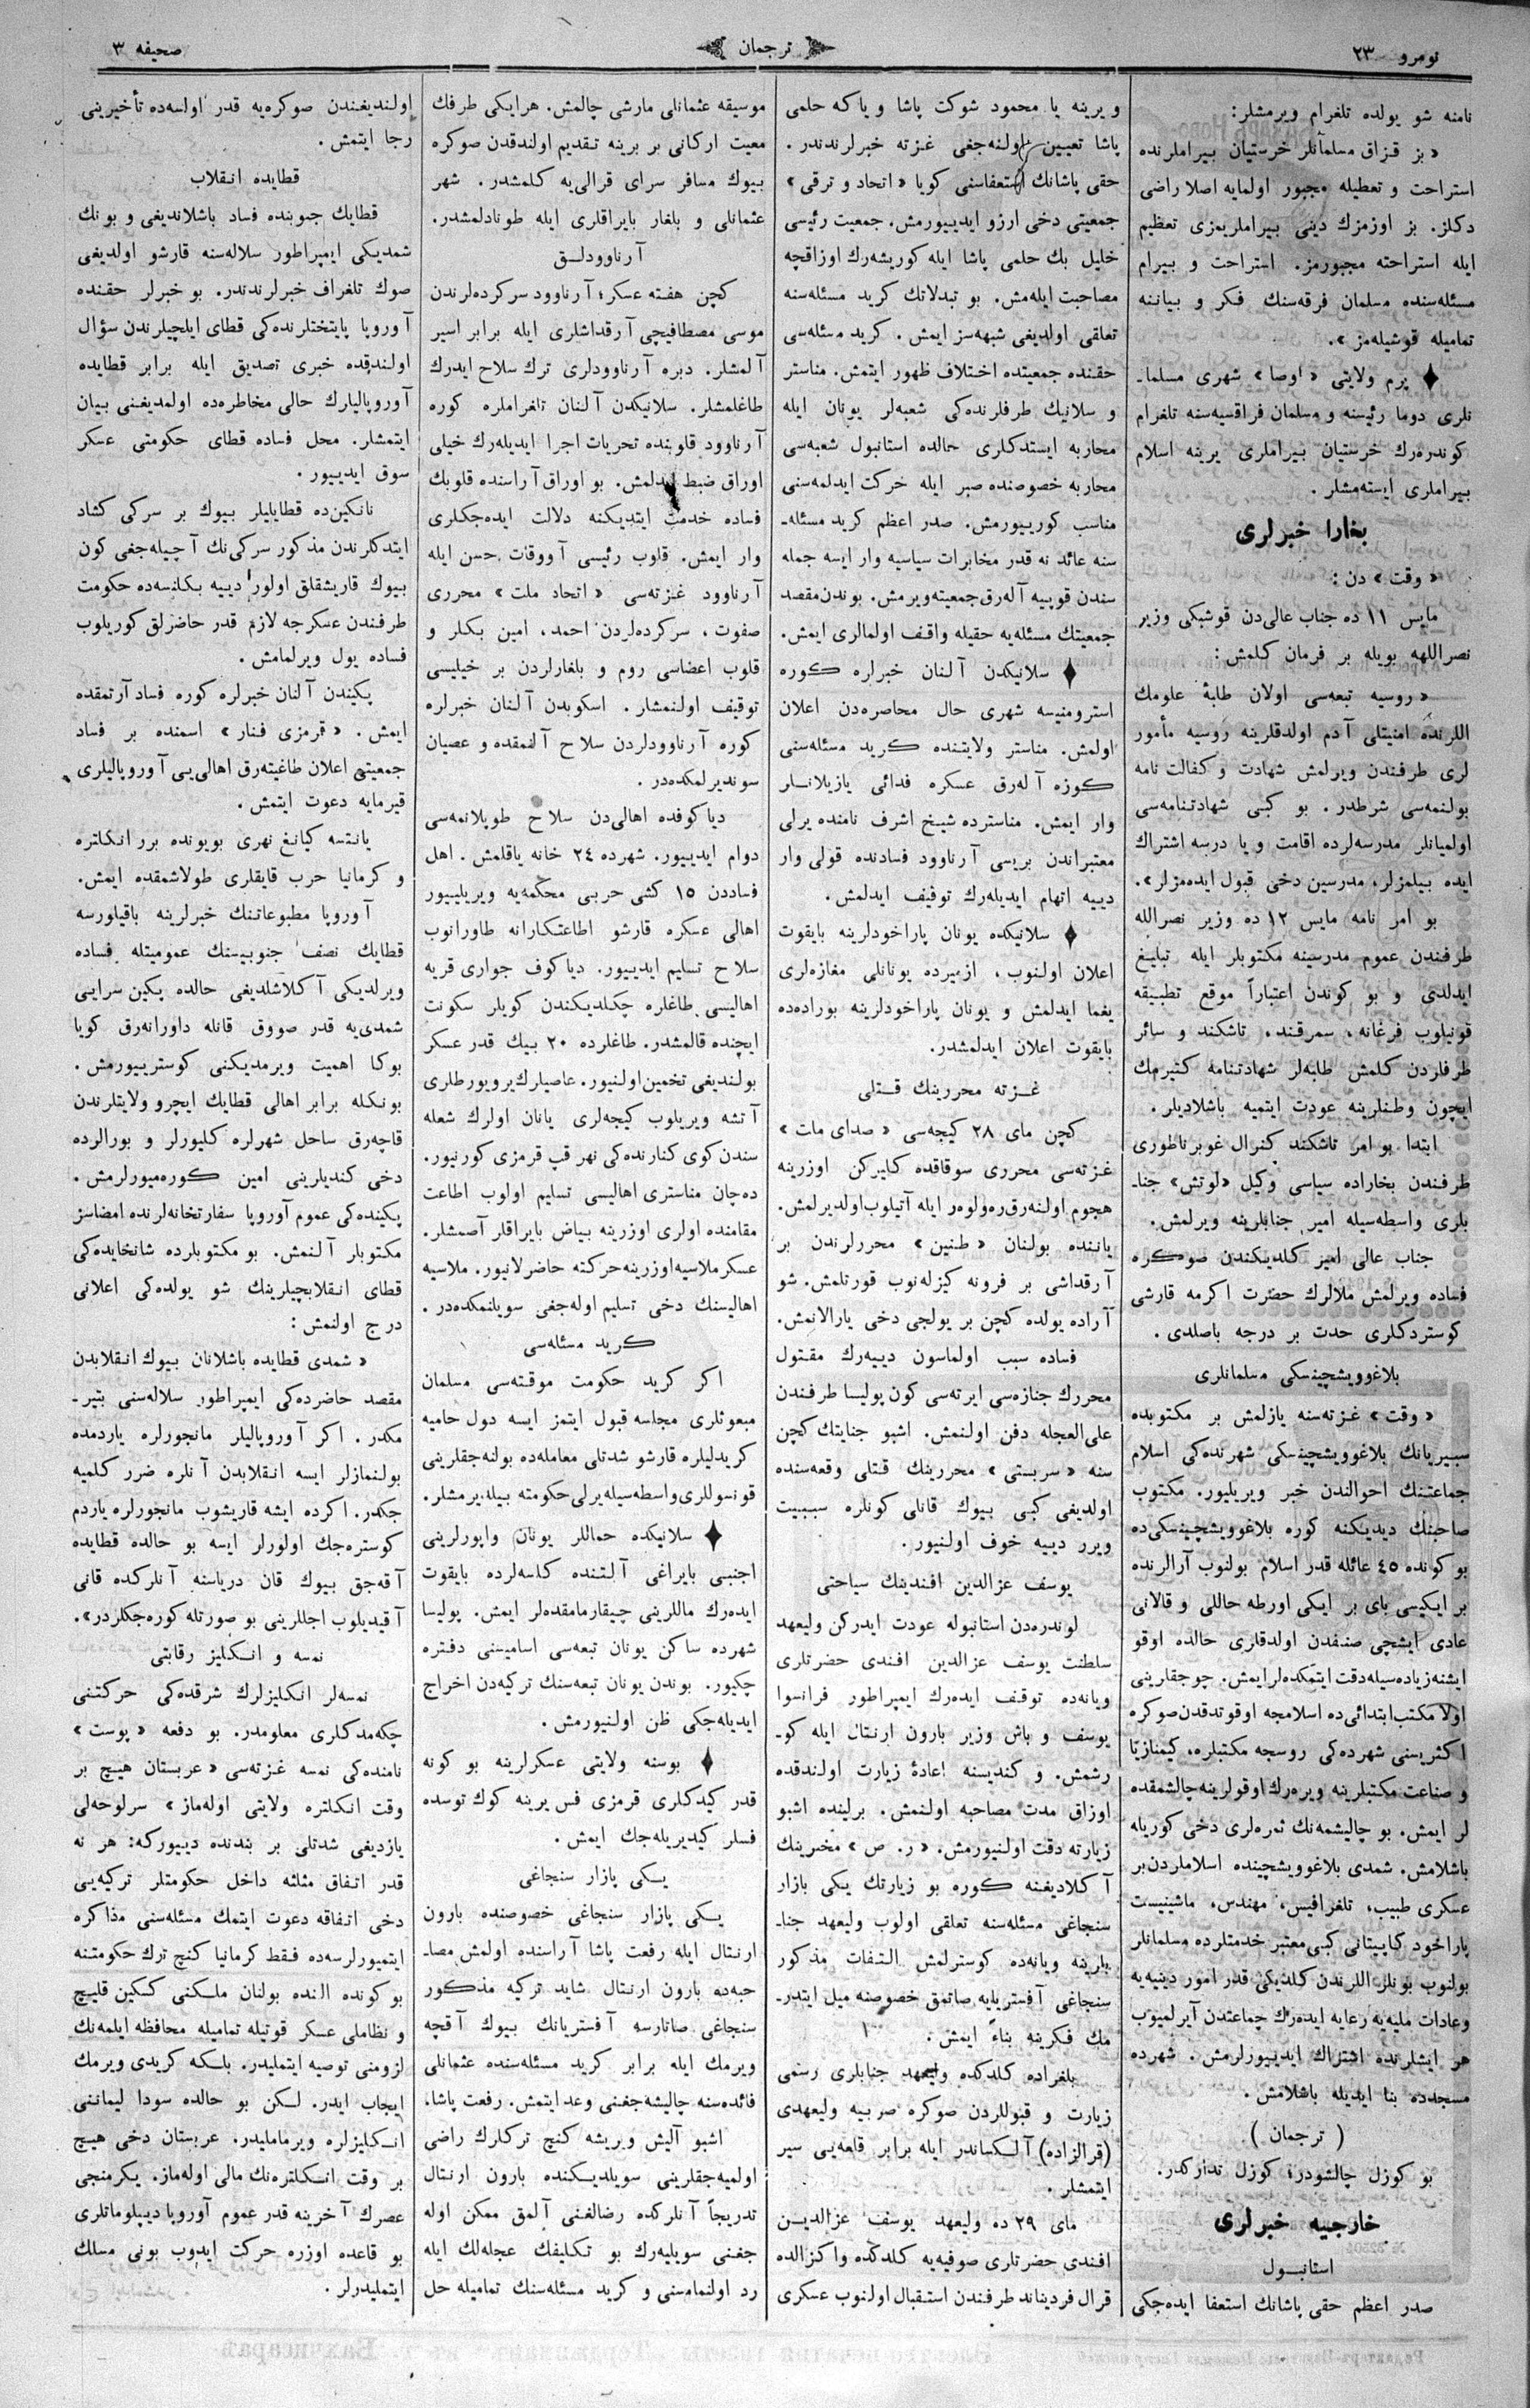 نومرو ٢٣
ترجمان
صحيفه ٣
نامنه شو يولده تلغرام ويرمشلر:
« بز قزاق مسلمانلر خرستيان بيراملرنده
استراحت و تعطيله مجبور اولمايه اصلا راضى
دكلز. بز اوزمزك دينى بيراملريمزى تعظيم
ايله استراحته مجبورمز. استراحت و بيرام
مسئله‌سنده مسلمان فرقه‌سنك فكر و بياننه
تماميله قوشيله‌مز ».
پرم ولايتى « اوصا » شهرى مسلما-
نلرى دوما رئيسنه و مسلمان فراقسيه‌سنه تلغرام
كوندره‌رك خرستيان بيراملرى يرينه اسلام
بيراملرى ايسته‌مشلر .
بخارا خبرلرى
« وقت » دن :
مايس ١١ ده جناب عالى‌دن قوشبكى وزير
نصراللهه بويله بر فرمان كلمش :
« روسيه تبعه‌سى اولان طلبهٔ علومك
اللرنده امنيتلى آدم اولدقلرينه روسيه مأمور
لرى طرفندن ويرلمش شهادت و كفالت نامه
بولنمه‌سى شرطدر . بو كبى شهادتنامه‌سى
اولميانلر مدرسه‌لرده اقامت و يا درسه اشتراك
ايده بيلمزلر، مدرسين دخى قبول ايده‌مزلر ».
بو امر نامه مايس ١٢ ده وزير نصرالله
طرفندن عموم مدرسينه مكتوبلر ايله تبليغ
ايدلدى و بو كوندن اعتباراً موقع تطبيقه
قونيلوب فرغانه ، سمرقند ، تاشكند و سائر
طرفلردن كلمش طلبه‌لر شهادتنامه كتيرمك
ايچون وطنلرينه عودت ايتميه باشلاديلر .
ابتدا بو امر تاشكند كنرال غوبرناطورى
طرفندن بخاراده سياسى وكيل «لوتش» جنا-
بلرى واسطه‌سيله امير جنابلرينه ويرلمش .
جناب عالى امير كلديكندن صوكره
فساده ويرلمش ملالرك حضرت اكرمه قارشى
كوستردكلرى حدت بر درجه باصلدى .
بلاغوويشچينسكى مسلمانلرى
« وقت » غزته‌سنه يازلمش بر مكتوبده
سبيريانك بلاغوويشچينسكى شهرنده‌كى اسلام
جماعتنك احوالندن خبر ويريليور. مكتوب
صاحبنك ديديكنه كوره بلاغوويشچينسكى‌ده
بو كونده ٤٥ عائله قدر اسلام بولنوب آرالرنده
بر ايكيسى باى بر ايكى اورطه حاللى و قالانى
عادى ايشچى صنفدن اولدقلرى حالده اوقو
ايشنه زياده‌سيله دقت ايتمكده‌لر ايمش. چوجقلرينى
اولا مكتب ابتدائى‌ده اسلامجه اوقوتدقدن صوكره
اكثريسنى شهرده‌كى روسجه مكتبلره، كيمنازيا
و صناعت مكتبلرينه ويره‌رك اوقولرينه چالشمقده
لر ايمش. بو چاليشمه‌نك ثمره‌لرى دخى كوريله
باشلامش. شمدى بلاغوويشچينده اسلاملردن بر
عسكرى طبيب، تلغرافيس، مهندس، ماشينيست
پاراخود كاپيتانى كبى معتبر خدمتلرده مسلمانلر
بولنوب بونلر اللرندن كلديكى قدر امور دينيه‌يه
وعادات مليه‌يه رعايه ايده‌رك جماعتدن آيرلميوب
هر ايشلرنده اشتراك ايدييورلرمش . شهرده
مسجدده بنا ايديله باشلامش .
( ترجمان )
بو كوزل چالشودر؛ كوزل تداركدر.
خارجيه خبرلرى
استانبول
صدر اعظم حقى پاشانك استعفا ايده‌جكى
و يرينه يا محمود شوكت پاشا و ياكه حلمى
پاشا تعيين اولنه‌جغى غزته خبرلرندندر .
حقى پاشانك استعفاسنى كويا « اتحاد و ترقى »
جمعيتى دخى ارزو ايدييورمش. جمعيت رئيسى
خليل بك حلمى پاشا ايله كوريشه‌رك اوزاقچه
مصاحبت ايله‌مش. بو تبدلاتك كريد مسئله‌سنه
تعلقى اولديغى شبهه‌سز ايمش . كريد مسئله‌سى
حقنده جمعيتده اختلاف ظهور ايتمش. مناستر
و سلانيك طرفلرنده‌كى شعبه‌لر يونان ايله
محاربه ايستدكلرى حالده استانبول شعبه‌سى
محاربه خصوصنده صبر ايله حركت ايدلمه‌سنى
مناسب كورييورمش. صدر اعظم كريد مسئله-
سنه عائد نه قدر مخابرات سياسيه وار ايسه جمله
سندن قوپيه آله‌رق جمعيته‌ويرمش. بوندن مقصد
جمعيتك مسئله‌يه حقيله واقف اولمالرى ايمش.
سلانيكدن آلنان خبرلره كوره
استرومنيسه شهرى حال محاصره‌دن اعلان
اولمش. مناستر ولايتنده كريد مسئله‌سنى
كوزه آله‌رق عسكره فدائى يازيلانلر
وار ايمش. مناسترده شيخ اشرف نامنده يرلى
معتبراندن بريسى آرناوود فسادنده قولى وار
دييه اتهام ايديله‌رك توقيف ايدلمش.
سلانيكده يونان پاراخودلرينه بايقوت
اعلان اولنوب ، ازميرده يونانلى مغازه‌لرى
يغما ايدلمش و يونان پاراخودلرينه بوراده‌ده
بايقوت اعلان ايدلمشدر.
غزته محررينك قتلى
كچن ماى ٢٨ كيجه‌سى « صداى ملت »
غزته‌سى محررى سوقاقده كليركن اوزرينه
هجوم اولنه‌رق ره‌ولوه‌ر ايله آتيلوب اولديرلمش.
ياننده بولنان « طنين » محررلرندن بر
آرقداشى بر فرونه كيزله‌نوب قورتلمش. شو
آراده يولده كچن بر يولجى دخى يارالانمش.
فساده سبب اولماسون دييه‌رك مقتول
محررك جنازه‌سى ايرته‌سى كون پوليسا طرفندن
على‌العجله دفن اولنمش. اشبو جنايتك كچن
سنه « سربستى » محررينك قتلى وقعه‌سنده
اولديغى كبى بيوك قانلى كونلره سببيت
ويرر دييه خوف اولنيور.
يوسف عزالدين افندينك سياحتى
لوندره‌دن استانبوله عودت ايدركن وليعهد
سلطنت يوسف عزالدين افندى حضرتلرى
ويانه‌ده توقف ايده‌رك ايمپراطور فرانسوا
يوسف و باش وزير بارون ارنتال ايله كو-
رشمش. و كنديسنه اعادهٔ زيارت اولندقده
اوزاق مدت مصاحبه اولنمش. برلينده اشبو
زيارته دقت اولنيورمش. « ر. ص » مخبرينك
آكلاديغنه كوره بو زيارتك يكى بازار
سنجاغى مسئله‌سنه تعلقى اولوب وليعهد جنا-
بلرينه ويانه‌ده كوسترلمش التفات مذكور
سنجاغى آفستريايه صاتمق خصوصنه ميل ايتدر-
مك فكرينه بناءً ايمش.
بلغراده كلدكده وليعهد جنابلرى رسمى
زيارت و قبوللردن صوكره صربيه وليعهدى
(قرالزاده) آلكساندر ايله برابر قلعه‌يى سير
ايتمشلر .
ماى ٢٩ ده وليعهد يوسف عزالدين
افندى حضرتلرى صوفيه‌يه كلدكده واكزالده
قرال فرديناند طرفندن استقبال اولنوب عسكرى
موسيقه عثمانلى مارشى چالمش. هرايكى طرفك
معيت اركانى بر برينه تقديم اولندقدن صوكره
بيوك مسافر سراى قرالى‌يه كلمشدر. شهر
عثمانلى و بلغار بايراقلرى ايله طونادلمشدر.
آرناوودلق
كچن هفته عسكر؛ آرناوود سركرده‌لرندن
موسى مصطافيچى آرقداشلرى ايله برابر اسير
آلمشلر. دبره آرناوودلرى ترك سلاح ايدرك
طاغلمشلر. سلانيكدن آلنان تلغراملره كوره
آرناوود قلوبنده تحريات اجرا ايديله‌رك خيلى
اوراق ضبط ايدلمش. بو اوراق آراسنده قلوبك
فساده خدمت ايتديكنه دلالت ايده‌جكلرى
وار ايمش. قلوب رئيسى آووقات حسن ايله
آرناوود غزته‌سى « اتحاد ملت » محررى
صفوت ، سركرده‌لردن احمد، امين بكلر و
قلوب اعضاسى روم و بلغارلردن بر خيليسى
توقيف اولنمشلر . اسكوبدن آلنان خبرلره
كوره آرناوودلردن سلاح آلنمقده و عصيان
سونديرلمكده‌در .
دياكوفده اهالى‌دن سلاح طوپلانمه‌سى
دوام ايدييور. شهرده ٢٤ خانه ياقلمش . اهل
فساددن ١٥ كشى حربى محكمه‌يه ويريلييور
اهالى عسكره قارشو اطاعتكارانه طاورانوب
سلاح تسليم ايدييور. دياكوف جوارى قريه
اهاليسى طاغلره چكلديكندن كويلر سكونت
ايچنده قالمشدر. طاغلرده ٢٠ بيك قدر عسكر
بولنديغى تخمين اولنيور. عاصيلرك يرويورطلرى
آتشه ويريلوب كيجه‌لرى يانان اولرك شعله
سندن كوى كنارنده‌كى نهر قپ قرمزى كورنيور.
ده‌چان مناسترى اهاليسى تسليم اولوب اطاعت
مقامنده اولرى اوزرينه بياض بايراقلر آصمشلر.
عسكر ملاسيه اوزرينه حركته حاضرلانيور. ملاسيه
اهاليسنك دخى تسليم اوله‌جغى سويلنمكده‌در .
كريد مسئله‌سى
اكر كريد حكومت موقته‌سى مسلمان
مبعوثلرى مجلسه قبول ايتمز ايسه دول حاميه
كريدليلره قارشو شدتلى معامله‌ده بولنه‌جقلرينى
قونسوللرى واسطه‌سيله يرلى حكومته بيله‌ديرمشلر.
سلانيكده حماللر يونان واپورلرينى
اجنبى بايراغى آلتنده كلسه‌لرده بايقوت
ايده‌رك ماللرينى چيقارمامقده‌لر ايمش. پوليسا
شهرده ساكن يونان تبعه‌سى اساميسنى دفتره
چكيور. بوندن يونان تبعه‌سنك تركيه‌دن اخراج
ايديله‌جكى ظن اولنيورمش.
بوسنه ولايتى عسكرلرينه بو كونه
قدر كيدكلرى قرمزى فس يرينه كوك توسده
فسلر كيديريله‌جك ايمش.
يكى پازار سنجاغى
يكى پازار سنجاغى خصوصنده بارون
ارنتال ايله رفعت پاشا آراسنده اولمش مصا-
حبه‌ده بارون ارنتال شايد تركيه مذكور
سنجاغى صاتارسه آفستريانك بيوك آقچه
ويرمك ايله برابر كريد مسئله‌سنده عثمانلى
فائده‌سنه چاليشه‌جغنى وعد ايتمش. رفعت پاشا،
اشبو آليش ويريشه كنج تركلرك راضى
اولميه‌جقلرينى سويلديكنده بارون ارنتال
تدريجاً آنلركده رضالغنى آلمق ممكن اوله
جغنى سويليه‌رك بو تكليفك عجله‌لك ايله
رد اولنمامسنى و كريد مسئله‌سنك تماميله حل
اولنديغندن صوكره‌يه قدر اولسه‌ده تأخيرينى
رجا ايتمش .
قطايده انقلاب
قطايك جنوبنده فساد باشلانديغى و بونك
شمديكى ايمپراطور سلاله‌سنه قارشو اولديغى
صوك تلغراف خبرلرندندر. بو خبرلر حقنده
آوروپا پايتختلرنده‌كى قطاى ايلچيلرندن سؤال
اولندقده خبرى تصديق ايله برابر قطايده
آوروپاليلرك حالى مخاطره‌ده اولمديغنى بيان
ايتمشلر. محل فساده قطاى حكومتى عسكر
سوق ايدييور .
نانكين‌ده قطايليلر بيوك بر سركى كشاد
ايتدكلرندن مذكور سركى‌نك آچيله‌جغى كون
بيوك قاريشقلق اولور دييه بكلنسه‌ده حكومت
طرفندن عسكرجه لازم قدر حاضرلق كوريلوب
فساده يول ويرلمامش .
پكيندن آلنان خبرلره كوره فساد آرتمقده
ايمش . « قرمزى فنار » اسمنده بر فساد
جمعيتى اعلان طاغيته‌رق اهالى‌يى آوروپاليلرى
قيرمايه دعوت ايتمش .
يانتسه كيانغ نهرى بويونده برر انكلتره
و كرمانيا حرب قايقلرى طولاشمقده ايمش.
آوروپا مطبوعاتنك خبرلرينه باقيلورسه
قطايك نصف جنوبيسنك عموميتله فساده
ويرلديكى آكلاشلديغى حالده پكين سرايى
شمدى‌يه قدر صووق قانله داورانه‌رق كويا
بوكا اهميت ويرمديكنى كوسترييورمش .
بونكله برابر اهالى قطايك ايچرو ولايتلرندن
قاچه‌رق ساحل شهرلره كليورلر و بورالرده
دخى كنديلرينى امين كوره‌ميورلرمش .
پكينده‌كى عموم آوروپا سفارتخانه‌لرنده امضاسز
مكتوبلر آلنمش. بو مكتوبلرده شانخايده‌كى
قطاى انقلابچيلرينك شو يولده‌كى اعلانى
درج اولنمش :
« شمدى قطايده باشلانان بيوك انقلابدن
مقصد حاضرده‌كى ايمپراطور سلاله‌سنى بتير-
مكدر . اكر آوروپاليلر مانجورلره ياردمده
بولنمازلر ايسه انقلابدن آنلره ضرر كلميه
جكدر. اكرده ايشه قاريشوب مانجورلره ياردم
كوستره‌جك اولورلر ايسه بو حالده قطايده
آقه‌جق بيوك قان درياسنه آنلركده قانى
آقيديلوب اجللرينى بو صورتله كوره‌جكلردر».
نمسه و انكليز رقابتى
نمسه‌لر انكليزلرك شرقده‌كى حركتنى
چكه‌مدكلرى معلومدر. بو دفعه « پوست »
نامنده‌كى نمسه غزته‌سى « عربستان هيچ بر
وقت انكلتره ولايتى اوله‌ماز » سرلوحه‌لى
يازديغى شدتلى بر بندنده دييوركه: هر نه
قدر اتفاق مثلثه داخل حكومتلر تركيه‌يى
دخى اتفاقه دعوت ايتمك مسئله‌سنى مذاكره
ايتميورلرسه‌ده فقط كرمانيا كنج ترك حكومتنه
بو كونده النده بولنان ملكنى كسكين قليچ
و نظاملى عسكر قوتيله تماميله محافظه ايلمه‌نك
لزومنى توصيه ايتمليدر. بلكه كريدى ويرمك
ايجاب ايدر. لكن بو حالده سودا ليماننى
انكليزلره ويرمامليدر. عربستان دخى هيچ
بر وقت انكلتره‌نك مالى اوله‌ماز. يكرمنجى
عصرك آخرينه قدر عموم آوروپا ديپلوماتلرى
بو قاعده اوزره حركت ايدوب بونى مسلك
ايتمليدرلر .